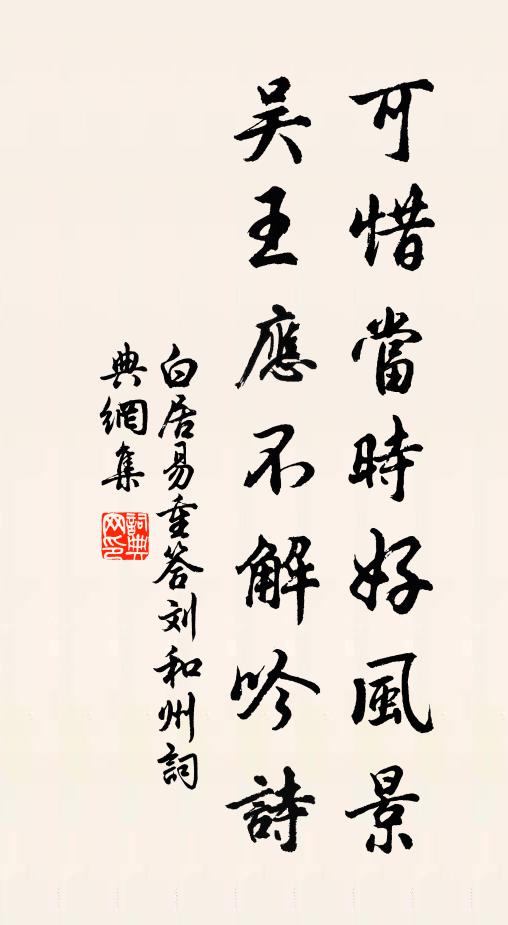 可惜當時好風景
吳王應不解吟詩
白居易重答刘和州詞
典網集
詞典网印